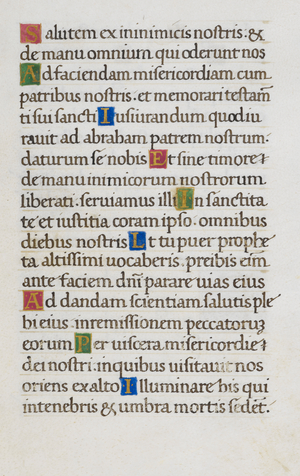 Salutem ex inimicis nostris · &
de manu omnium qui oderunt nos
Ad faciendam misericordiam cum
patribus nostris · et memorari testam̄
ti sui sancti Iusiurandum quod iu
rauit ad abraham patrem nostrum ·
daturum se nobis Et sine timore
de manu inimicorum nostrorum
liberati · seruiamus illi In sanctita
te et iustitia coram ipso · omnibus
diebus nostris Et tu puer prophe
ta altissimi uocaberis · preibis eīm
ante faciem dn̄i parare uias eius
Ad dandam scientiam salutis ple
bi eius · in remissionem peccatoruꝝ
eorum Per uiscera misericordie
dei nostri · in quibus uisitauit nos
oriens ex alto Illuminare his qui
in tenebris & umbra mortis sedēt ·